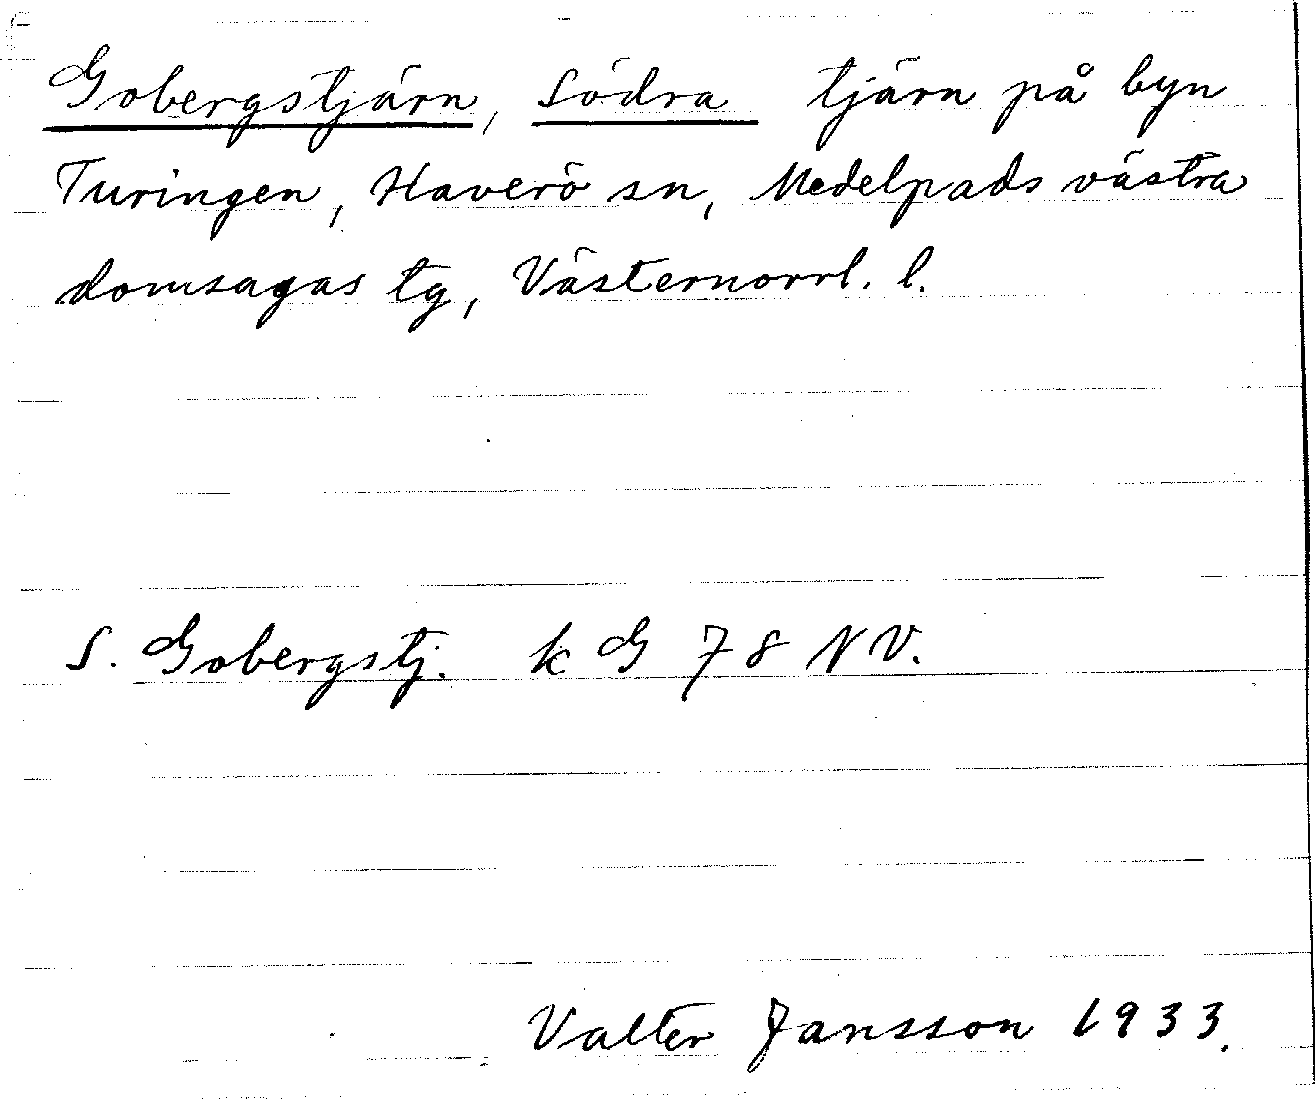 Gobergstjärn, Södra tjärn på byn
Turingen, Haverö sn, Medelpads västra
domsagas tg, Västernorrl. l.
S. Gobergstj. k G 78 NV.
Valter Jansson 1933.